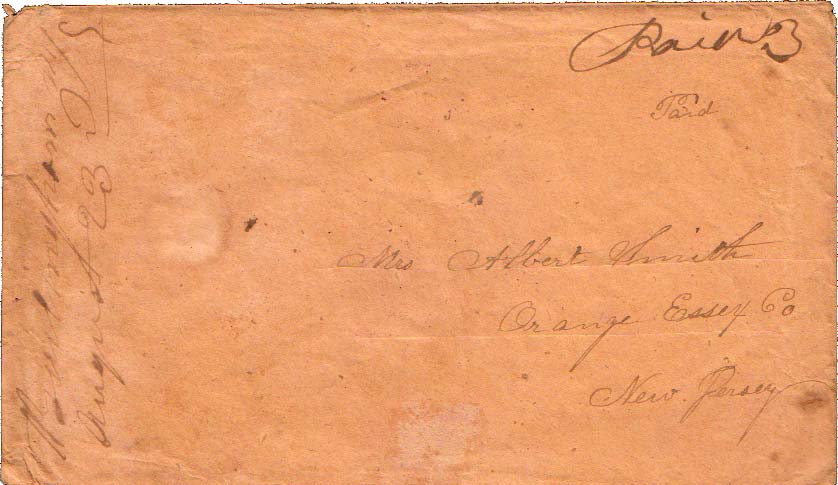 Paid 3
Paid
Mrs Albert Smith
Orange Essex Co
New Jersey
August 23